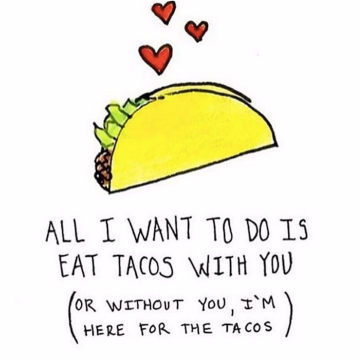 ALL I WANT TO DO IS
EAT TACOS WITH YOU
(OR WITHOUT YOU, I'M
HERE FOR THE TACOS)